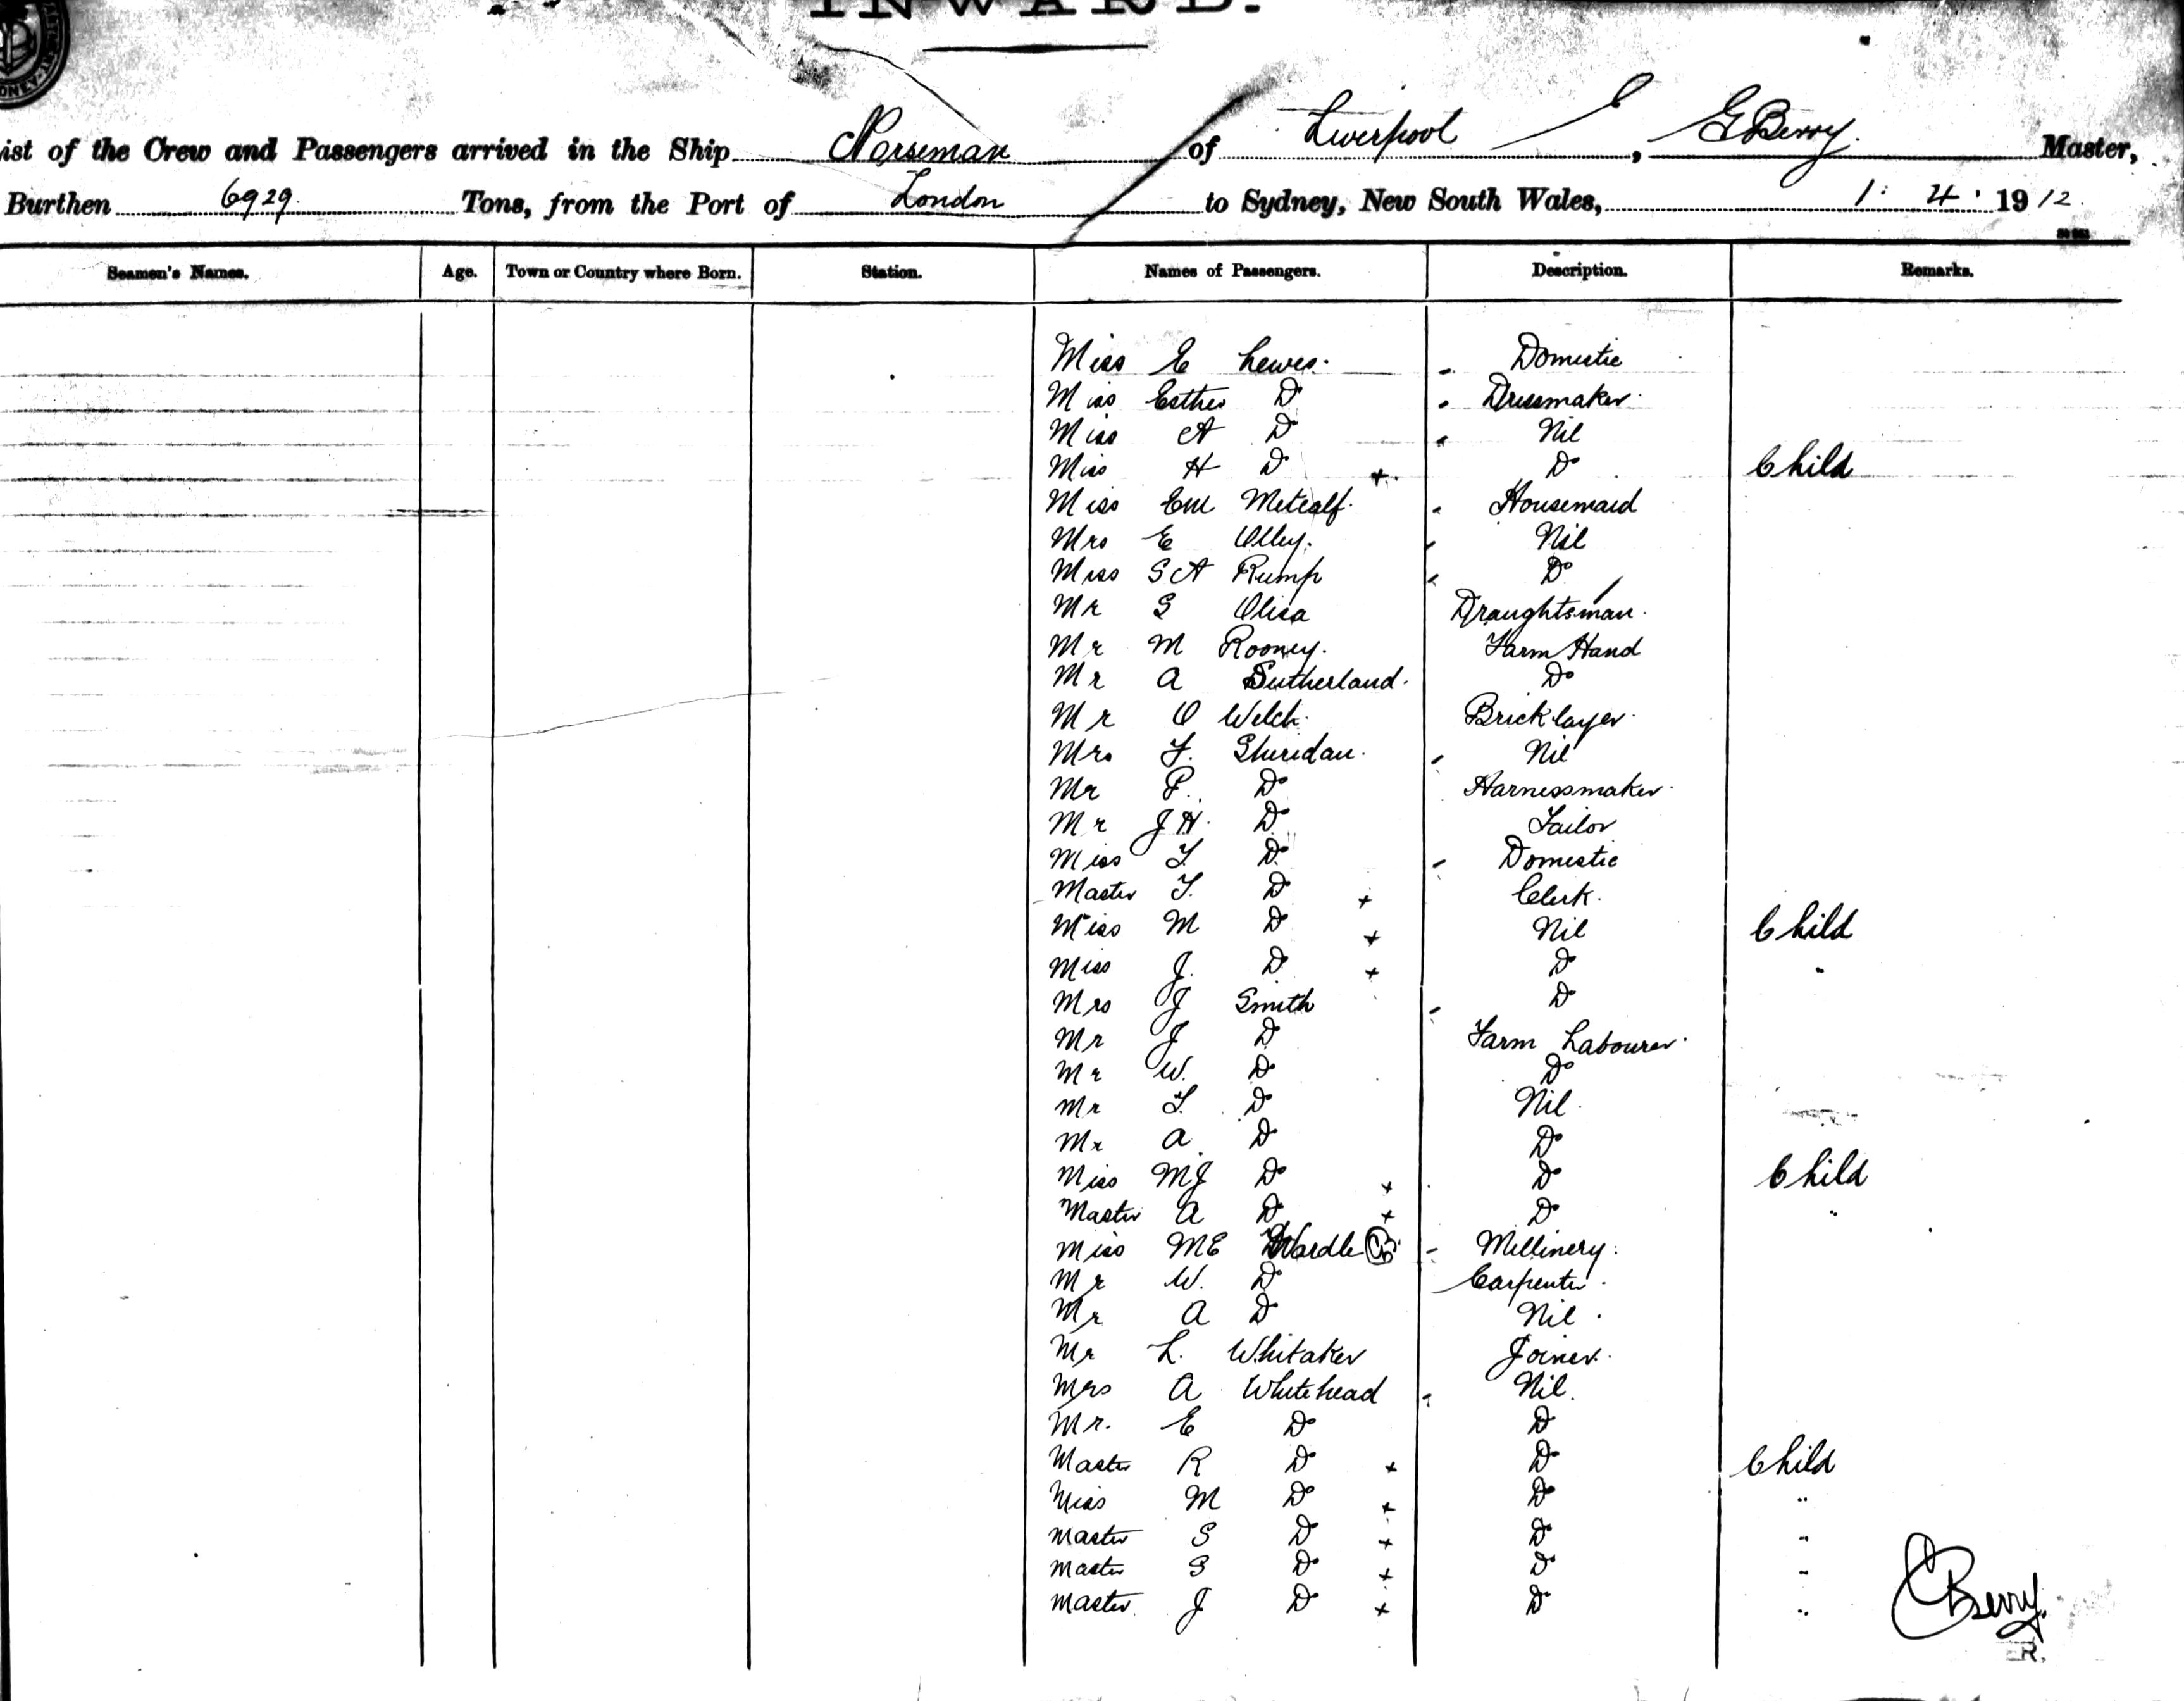 INWARD.
ist of the Crew and Passengers arrived in the Ship Norseman of Liverpool E, G Berry. Master,
Burthen 6929. Tons, from the Port of London to Sydney, New South Wales, 1: 4 ' 1912.
Seamen's Names. Age. Town or Country where Born. Station. Names of Passengers. Description. Remarks.
Miss E Lewes. Domestic
Miss Esther Do Dressmaker.
Miss A Do Nil
Miss H Do + Do Child
Miss EM Metcalf. Housemaid
Mrs E Olley. Nil
Miss S A Rump Do
Mr S Olisa Draughtsman.
Mr M Rooney. Farm Hand
Mr A Sutherland. Do
Mr O Welch. Bricklayer.
Mrs F. Sheridan. Nil
Mr P. Do Harnessmaker.
Mr J H. Do Tailor
Miss T. Do Domestic
Master T. Do + Clerk.
Miss M Do + Nil Child
Miss J. Do + Do "
Mrs J Smith Do
Mr J Do Farm Labourer.
Mr W. Do Do
Mr T. Do Nil.
Mr A. Do Do
Miss MJ Do + Do Child
Master A Do + Do "
Miss ME Wardle Millinery.
Mr W. Do Carpenter.
Mr A Do Nil.
Mr L. Whitaker Joiner.
Mrs A Whitehead Nil.
Mr. E Do Do
Master R Do + Do Child
Miss M Do + Do "
Master S Do + Do "
Master S Do + Do "
Master J Do + Do "
Berry.
R.